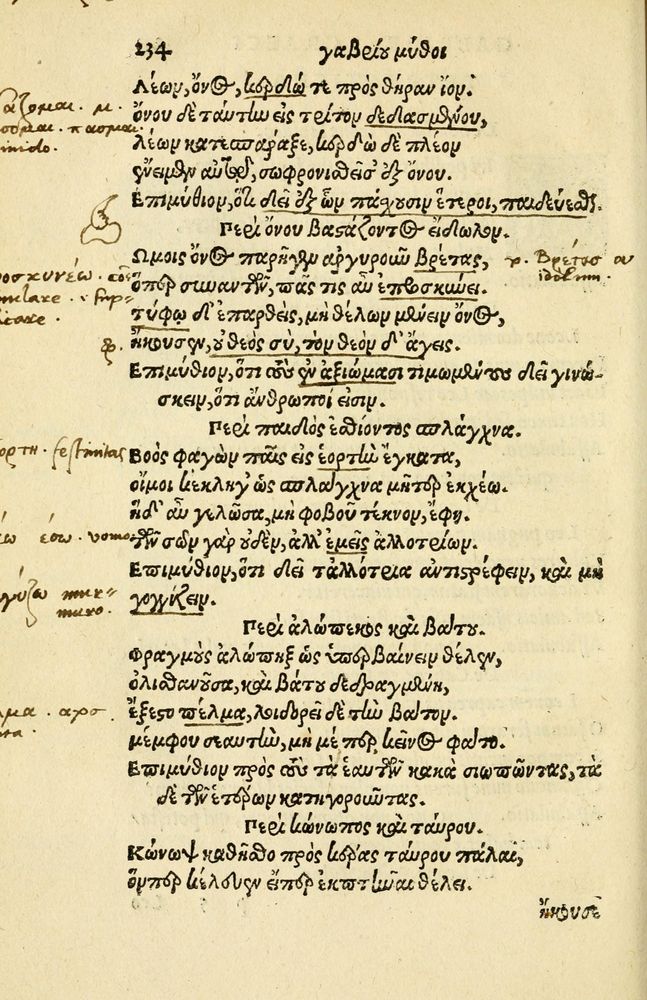 234 γαβρίου μύθοι
Λέων, ὄνος, κερδώ τε πρὸς θήραν ἴον.
ὄνου δὲ ταύτην εἰς τρίτον δεδασμένου,
λέων κατεσπάραξε, κερδὼ δὲ πλέον
ἔνειμεν αὐτῷ, σωφρονισθεῖσ' ἐξ ὄνου.
Επιμύθιον, ὅτι δεῖ ἐξ ὧν πάσχουσιν ἕτεροι, παιδεύεσθαι.
Περὶ ὄνου βαστάζοντος εἴδωλον.
Ωμοις ὄνος παρῆγεν ἀργυροῦν βρέτας,
ὅπερ συναντῶν, πᾶς τις ἂν ἐπροσκύνει.
τύφῳ δ' ἐπαρθεὶς, μὴ θέλων μένειν ὄνος,
ἤκουσεν, οὐ θεὸς σὺ, τὸν θεὸν δ' ἄγεις.
Επιμύθιον, ὅτι τοὺς ἐν ἀξιώμασι τιμωμένους δεῖ γινώ-
σκειν, ὅτι ἄνθρωποί εἰσιν.
Περὶ παιδὸς ἐσθίοντος σπλάγχνα.
Βοὸς φαγὼν παῖς εἰς ἑορτὴν ἔγκατα,
οἴμοι κέκληγ' ὡς σπλάγχνα μῆτερ ἐκχέω.
ἡ δ' αὖ γελῶσα, μὴ φοβοῦ τέκνον, ἔφη.
τῶν σῶν γὰρ οὐδὲν, ἀλλ' ἐμεῖς ἀλλοτρίων.
Επιμύθιον, ὅτι δεῖ τἀλλότρια ἀντιστρέφειν, καὶ μὴ
γογγίζειν.
Περὶ ἀλώπεκος καὶ βάτου.
Φραγμοὺς ἀλώπηξ ὡς ὑπερβαίνειν θέλεν,
ὀλισθανοῦσα, καὶ βάτου δεδραγμένη,
ἔξεστο πέλμα, λοιδορεῖ δὲ τὴν βάτον.
μέμφου σεαυτὴν, μή με περ κεῖνος φάτο.
Επιμύθιον πρὸς τοὺς τὰ ἑαυτῶν κακὰ σιωπῶντας, τὰ
δὲ τῶν ἑτέρων κατηγοροῦντας.
Περὶ κώνωπος καὶ ταύρου.
Κώνωψ καθῆστο πρὸς κέρας ταύρου πάλαι,
ὅνπερ κέλευεν εἴπερ ἐκπτῆναι θέλει.
ἤκουσε
Βρέτος
ορτη. festiuitas
έω έσω. vomo
γύζω mur-
muro.